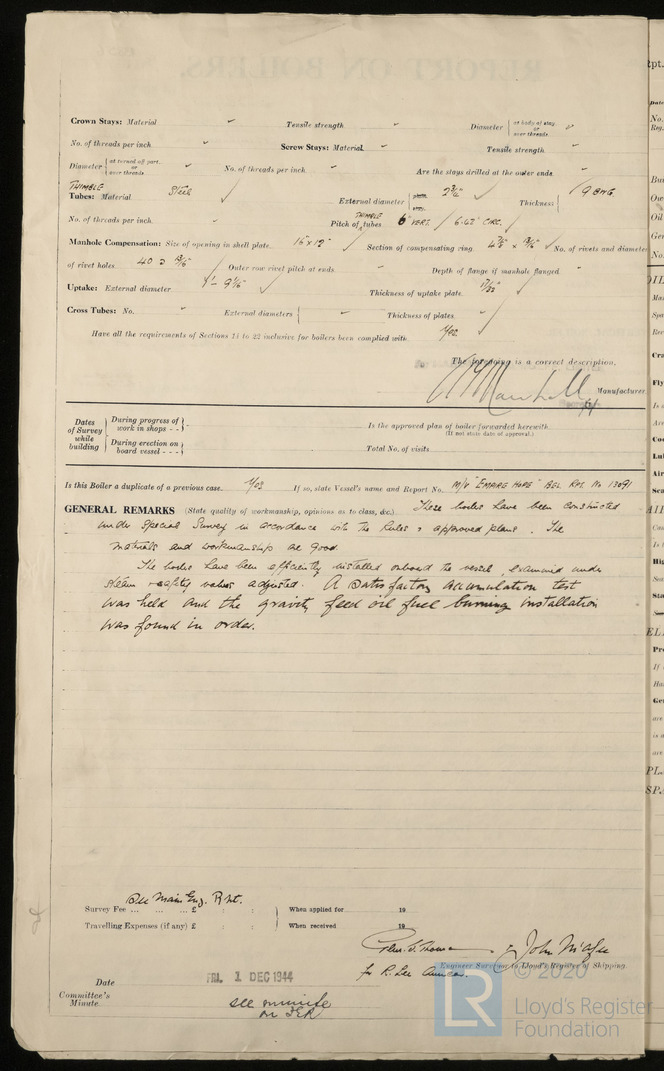 REPORT ON BOILERS.
Crown Stays: Material " Tensile strength " Diameter { at body of stay, or over threads "
No. of threads per inch " Screw Stays: Material " Tensile strength "
Diameter { at turned off part, or over threads " No. of threads per inch " Are the stays drilled at the outer ends "
THIMBLE
Tubes: Material Steel External diameter 2 3/4" Thickness 9 BWG
No. of threads per inch " Pitch of THIMBLE tubes 6" VERT. / 6.42" CIRC.
Manhole Compensation: Size of opening in shell plate 16" x 12" Section of compensating ring No. of rivets and diameter
of rivet holes 40 Outer row rivet pitch at ends " Depth of flange if manhole flanged "
Uptake: External diameter 1'- 9 Thickness of uptake plate 17/32"
Cross Tubes: No. " External diameters { " Thickness of plates "
Have all the requirements of Sections 14 to 22 inclusive for boilers been complied with Yes.
The foregoing is a correct description,
Manufacturer
Dates of Survey while building { During progress of work in shops - - } " Is the approved plan of boiler forwarded herewith
(If not state date of approval.)
During erection on board vessel - - - } Total No. of visits
Is this Boiler a duplicate of a previous case. Yes If so, state Vessel's name and Report No. M/V "EMPIRE HOPE" BEL. Rpt. No 13091
GENERAL REMARKS (State quality of workmanship, opinions as to class, &c.) These boilers have been constructed
under Special Survey in accordance with the Rules & approved plans. The
materials and workmanship are good.
The boilers have been efficiently installed onboard the vessel examined under
steam & safety valves adjusted. A satisfactory accumulation test
was held and the gravity feed oil fuel burning installation
was found in order.
See Main Eng. Rpt.
Survey Fee ... ... ... £ : : When applied for 19
Travelling Expenses (if any) £ : : When received 19
John McAfee
Engineer Surveyor to Lloyd's Register of Shipping.
for R. Lee
Date FRI. 1 DEC 1944
Committee's Minute
see minute
on FER
© 2020
LR
Lloyd's Register
Foundation